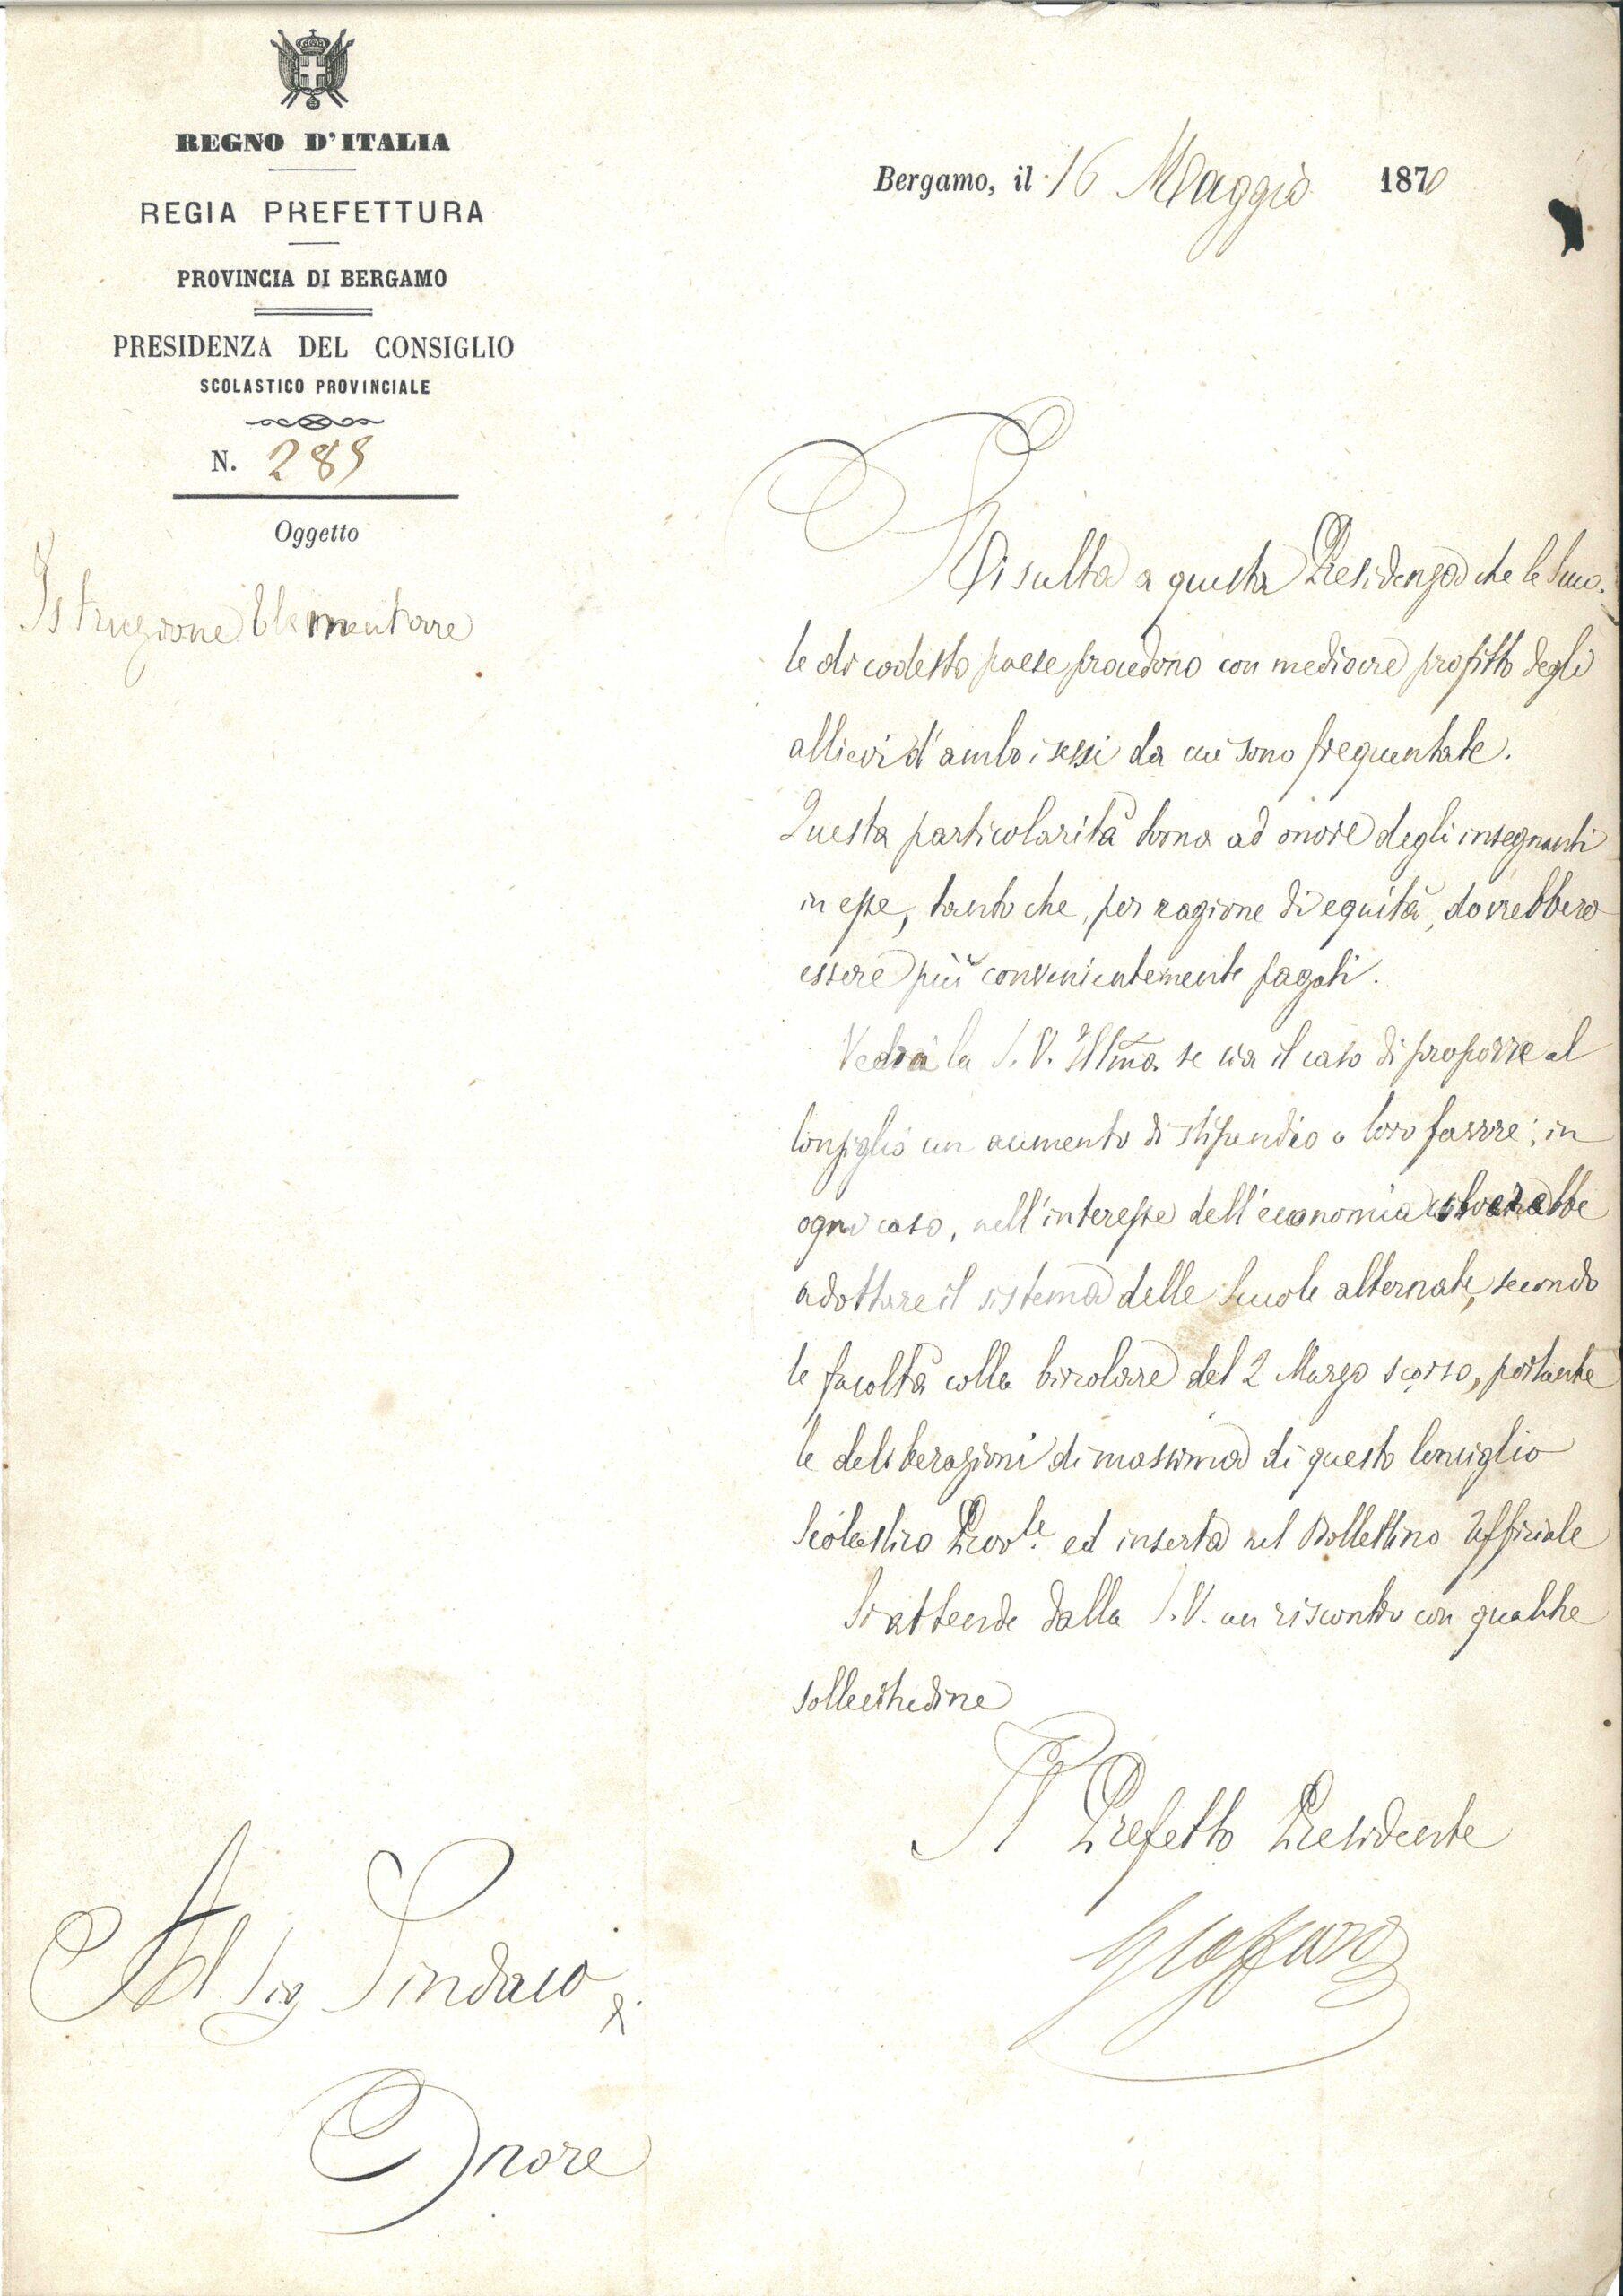 REGNO D'ITALIA
REGIA PREFETTURA
PROVINCIA DI BERGAMO
PRESIDENZA DEL CONSIGLIO
SCOLASTICO PROVINCIALE
N. 289
Oggetto
Istruzione Elementare
Bergamo, il 16 Maggio 1870
Risulta a questa Presidenza che le Scuo-
le di codesto paese procedono con mediocre profitto degli
allievi d'ambo i sessi da cui sono frequentate.
Questa particolarità torna ad onore degli insegnanti
in esse, tanto che, per ragione di equità, dovrebbero
essere più convenientemente pagati.
Vedrà la S. V. Illma se sia il caso di proporre al
Consiglio un aumento di stipendio a loro favore; in
ogni caso, nell'interesse dell'economia
adottare il sistema delle Scuole alternate, secondo
le facoltà colla Circolare del 2 Marzo scorso, portante
le deliberazioni di massima di questo Consiglio
Scolastico Provle. ed inserta nel Bollettino Ufficiale
Si attende dalla S. V. un riscontro con qualche
sollecitudine
Il Prefetto Presidente
Al Sig Sindaco
di
Onore